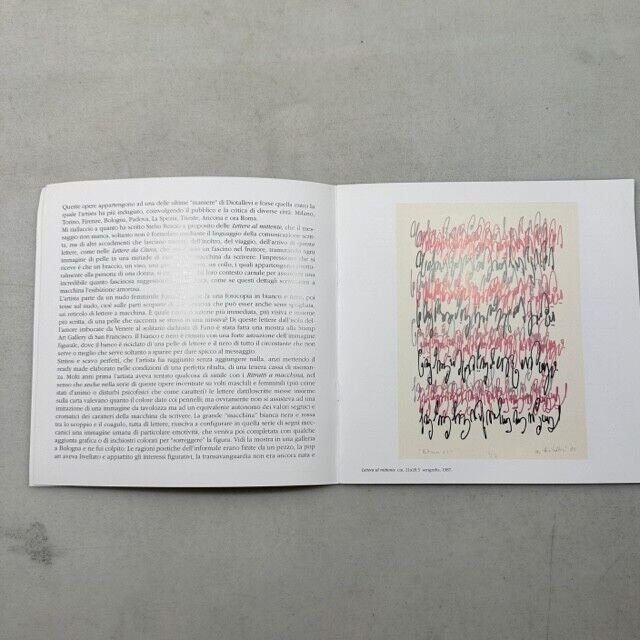 Queste opere appartengono ad una delle ultime "maniere" di Diotallevi e forse quella entro la
quale l'artista ha più indugiato, coinvolgendo il pubblico e la critica di diverse città: Milano,
Torino, Firenze, Bologna, Padova, La Spezia, Trieste, Ancona e ora Roma.
Mi riallaccio a quanto ha scritto Stelio Rescio a proposito delle Lettere al mittente, che il mes-
saggio non manca, soltanto non è formulato mediante il linguaggio della comunicazione scrit-
ta, ma di altri accadimenti che lasciano intuire dell'inoltro, del viaggio, dell'arrivo di queste
lettere, come nelle Lettere da Citera, che un fascino nel fruitore, tramutando ogni
immagine di pelle in una miriade di macchina da scrivere: l'impressione che si
riceve è che un braccio, un viso, una un collo, i quali appartengono
alla persona di una donna, loro contesto carnale per assumere una
incredibile quanto fascinosa suggestione come se questi dettagli scrivessero a
macchina l'esibizione amorosa.
L'artista parte da un nudo femminile da una fotocopia in bianco e nero, poi
tesse sul nudo, cioè sulle parti scoperte di che può essere anche seno spogliata,
un reticolo di lettere a macchina. E quale comunicazione più immediata, più visiva e insieme
più scritta, di una pelle che racconta se stessa in una missiva? Di queste lettere dall'isola del-
l'amore imbucate da Venere al solitario dadaista di Fano è stata fatta una mostra alla Stamp
Art Gallery di San Francisco. Il bianco e nero è emerso con una forte astuzione dell'immagine
figurale, dove il bianco è riciclato di una pelle di lettere e il nero di tutto il circostante che non
serve o meglio che serve soltanto a sparire per dare spicco al messaggio.
Sintesi e scavo perfetti, che l'artista ha raggiunto senza aggiungere nulla, anzi mettendo il
ready made elaborato nelle condizioni di una perfetta ribalta, di una tenera cassa di risonan-
za. Molti anni prima l'artista aveva tentato qualcosa di simile con i Ritratti a macchina, nel
senso che anche nella serie di queste opere incentrate su volti maschili e femminili (più come
stati d'animo o disturbi psicofisici che come caratteri) le lettere dattiloscritte messe insieme
sulla carta valevano quanto il colore dato col pennello, ma ovviamente non si assisteva ad una
imitazione di una immagine da tavolozza ma ad un equivalente autonomo dei valori segnici e
cromatici dei caratteri della macchina da scrivere. La grande "macchina" bianca nera e rossa
tra lo scoppio e il coagulo, tutta di lettere, riusciva a configurare in quella serie di segni mec-
canici una immagine umana di particolare emotività, che veniva poi completata con qualche
aggiunta grafica o di inchiostri colorati per "sorreggere" la figura. Vidi la mostra in una galleria
a Bologna e ne fui colpito. Le ragioni poetiche dell'informale erano finite da un pezzo, la pop
art aveva livellato e appiattito gli interessi figurativi, la transavanguardia non era ancora nata e
Lettera al mittente cm. 21x28.5 serigrafia, 1987.